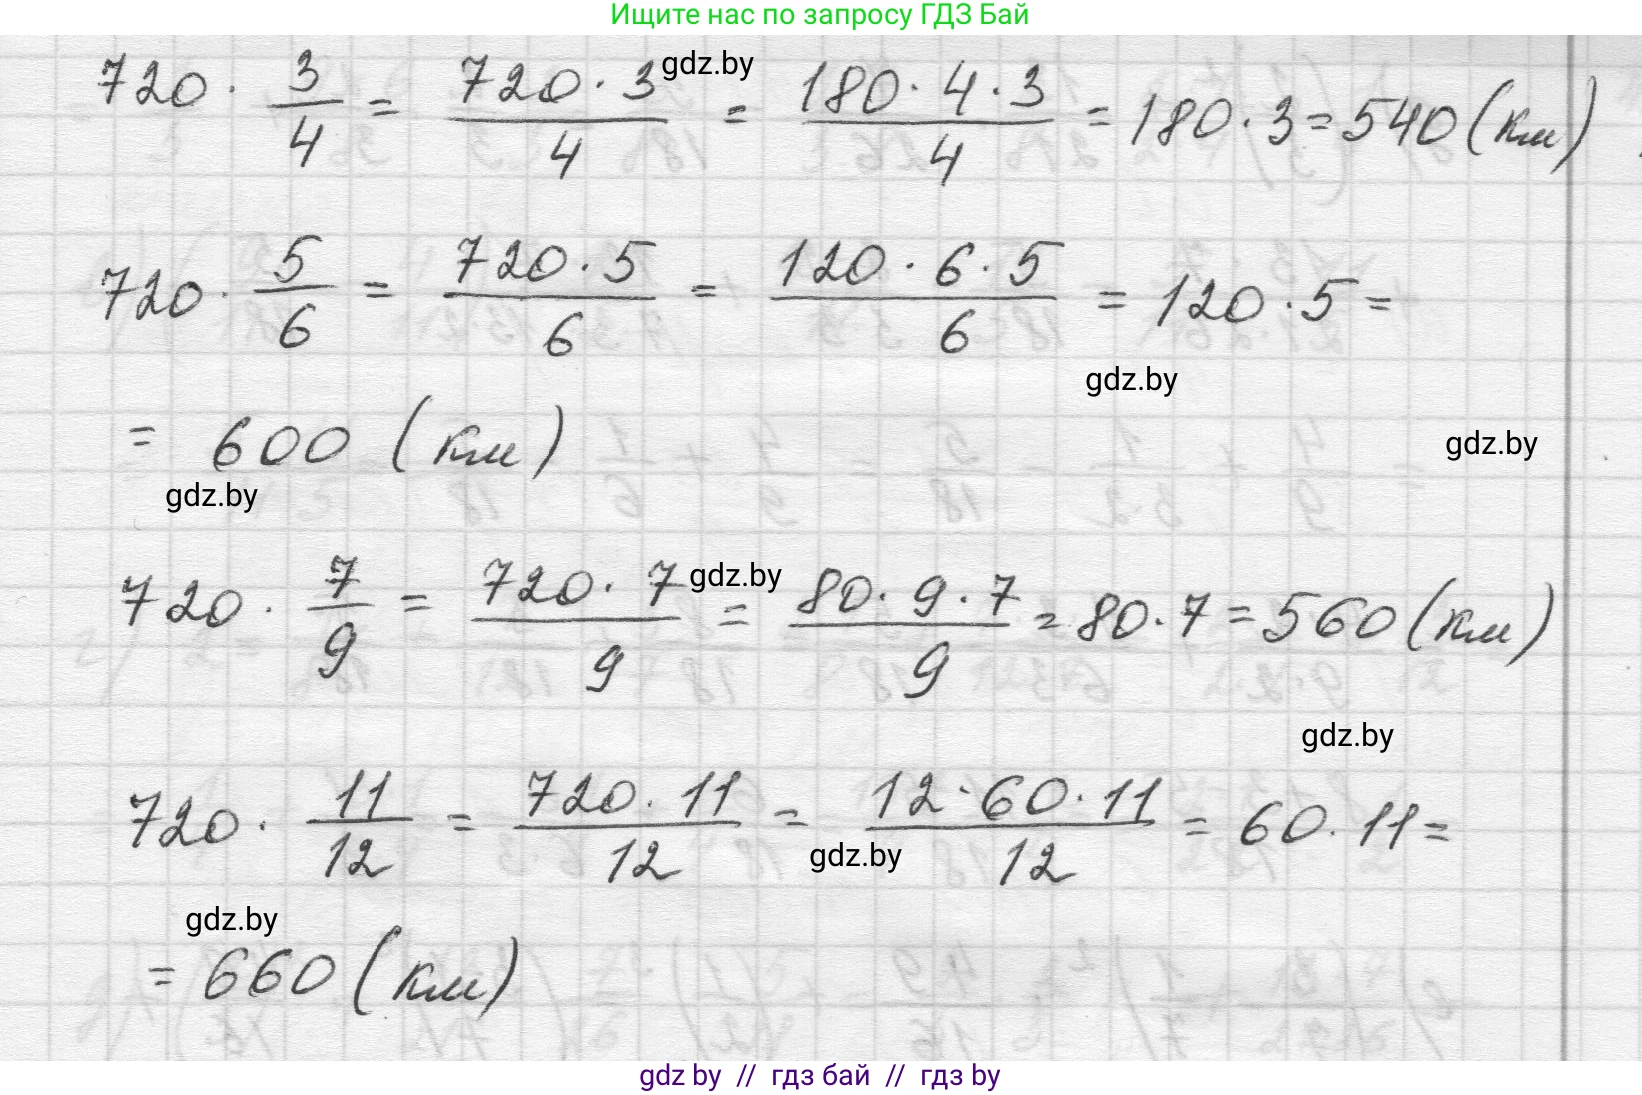 Ищите нас по запросу ГДЗ Бай
720 · 3/4 = 720 · 3/4 = 180 · 4 · 3/4 = 180 · 3 = 540 (км)
gdz.by
720 · 5/6 = 720 · 5/6 = 120 · 6 · 5/6 = 120 · 5 =
gdz.by
= 600 (км)
gdz.by
gdz.by
720 · 7/9 = 720 · 7/9 = 80 · 9 · 7/9 = 80 · 7 = 560 (км)
gdz.by
gdz.by
720 · 11/12 = 720 · 11/12 = 12 · 60 · 11/12 = 60 · 11 =
gdz.by
gdz.by
= 660 (км)
gdz by // гдз бай // гдз by